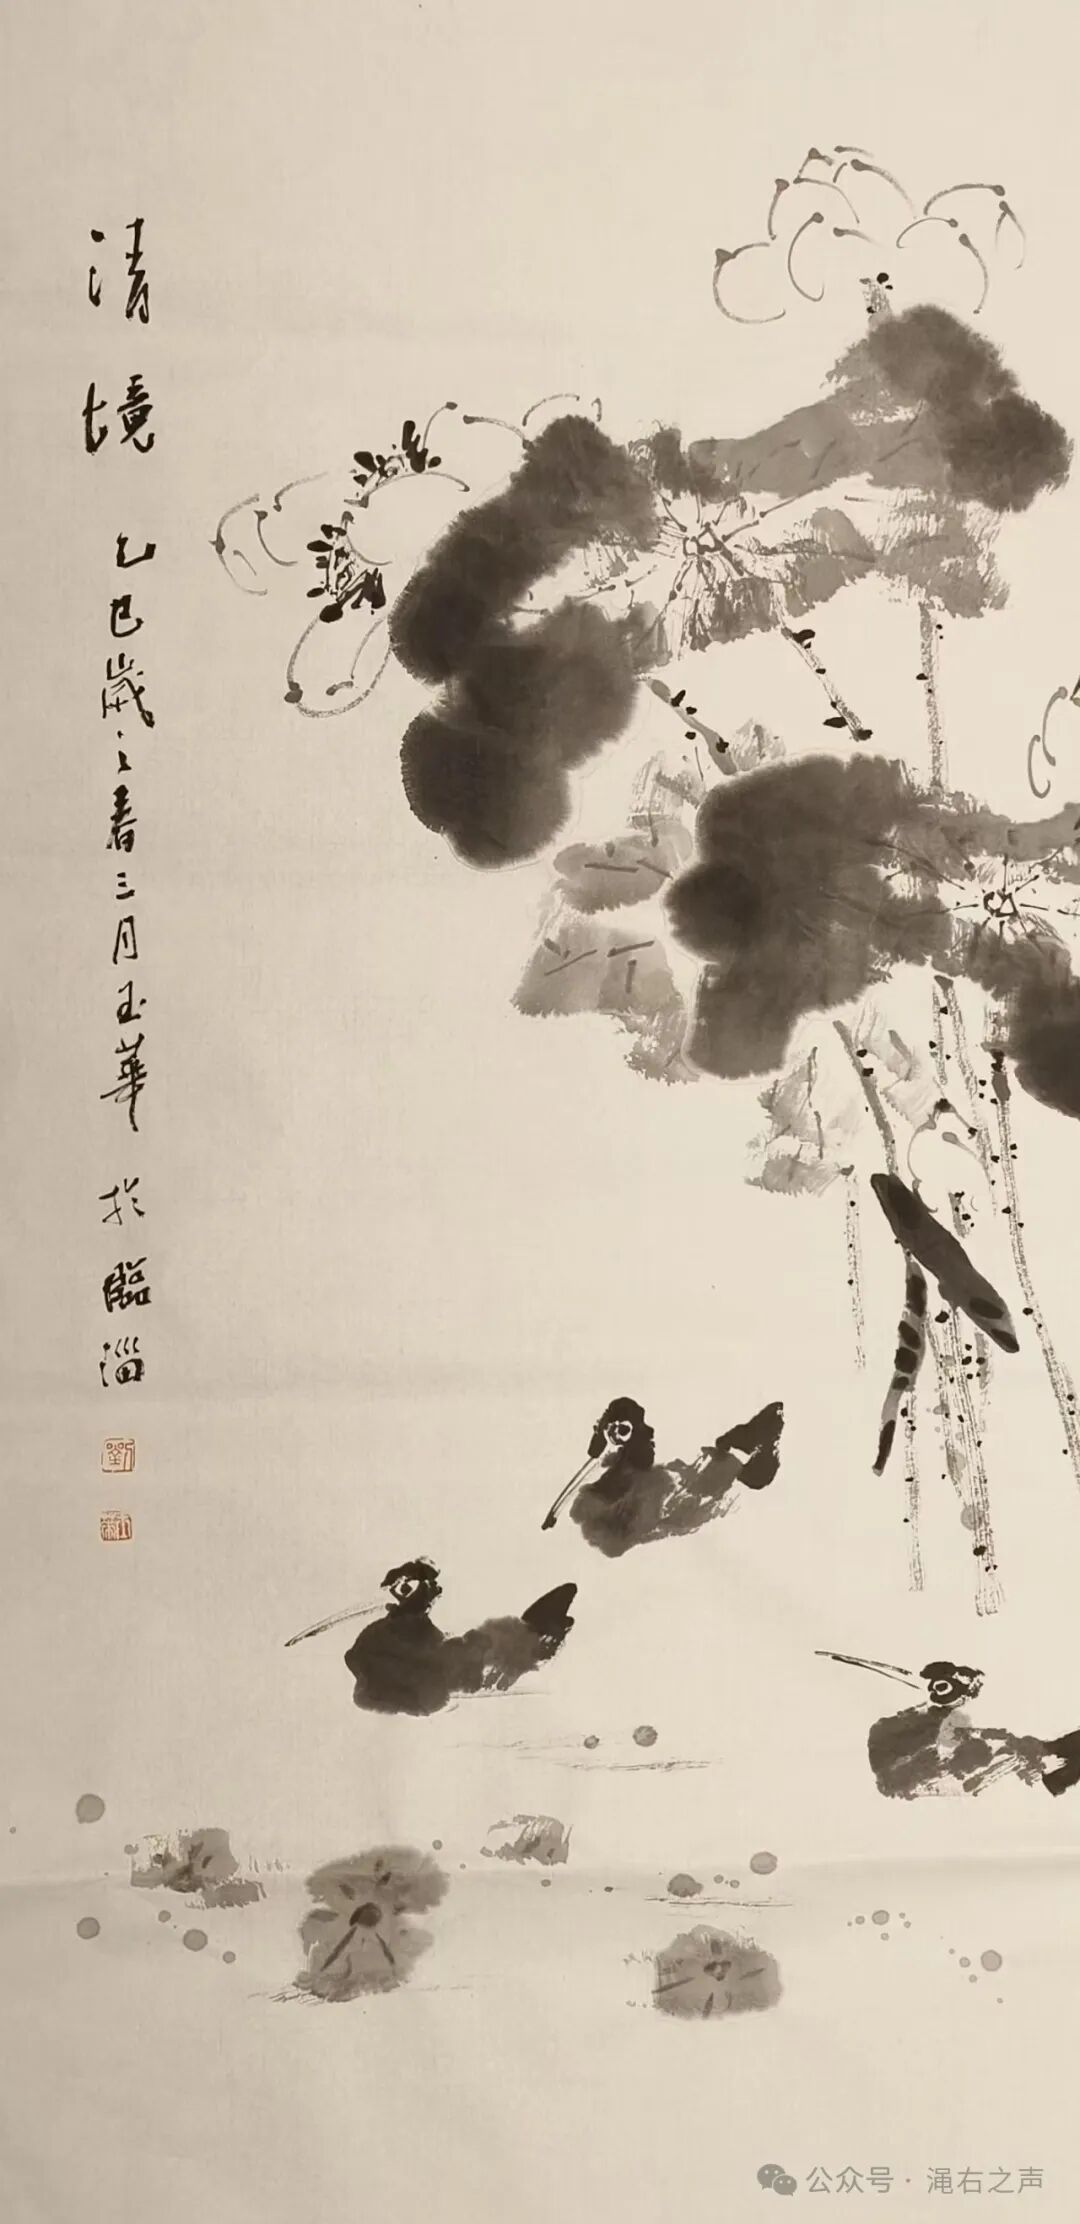 清境
乙巳歲之春三月玉華於臨淄
劉
公众号·渑右之声